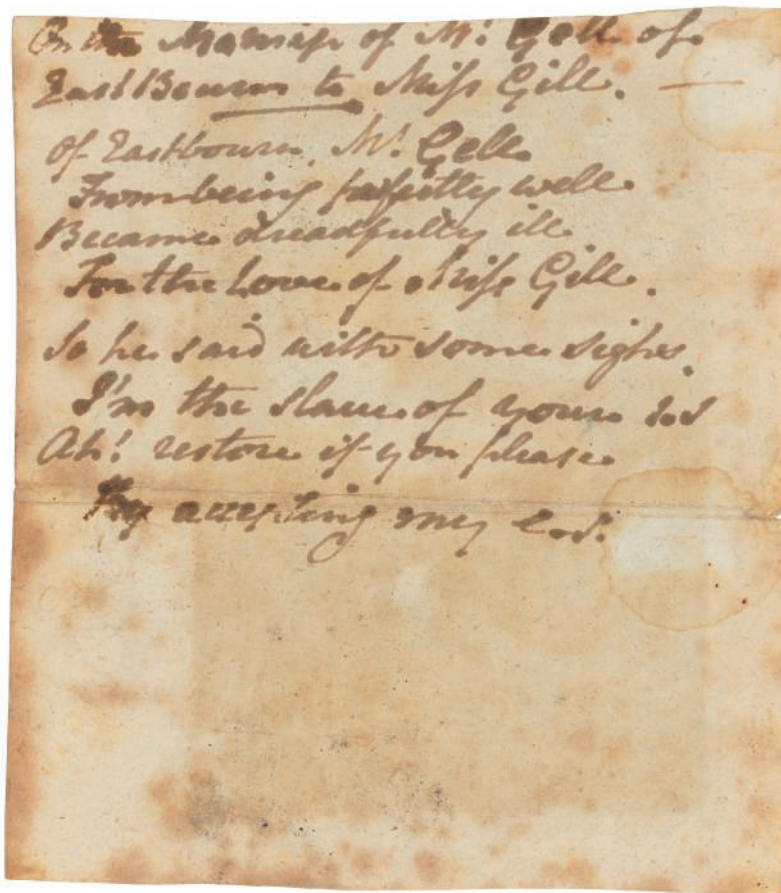 On the Marriage of Mr. Gell of
East Bourn to Miss Gill.
Of Eastbourn, Mr. Gell
From being perfectly well
Became dreadfully ill
For the Love of Miss Gill.
So he said with some sighs,
I'm the slave of your i.s
Ah! restore if you please
By accepting my e.s.